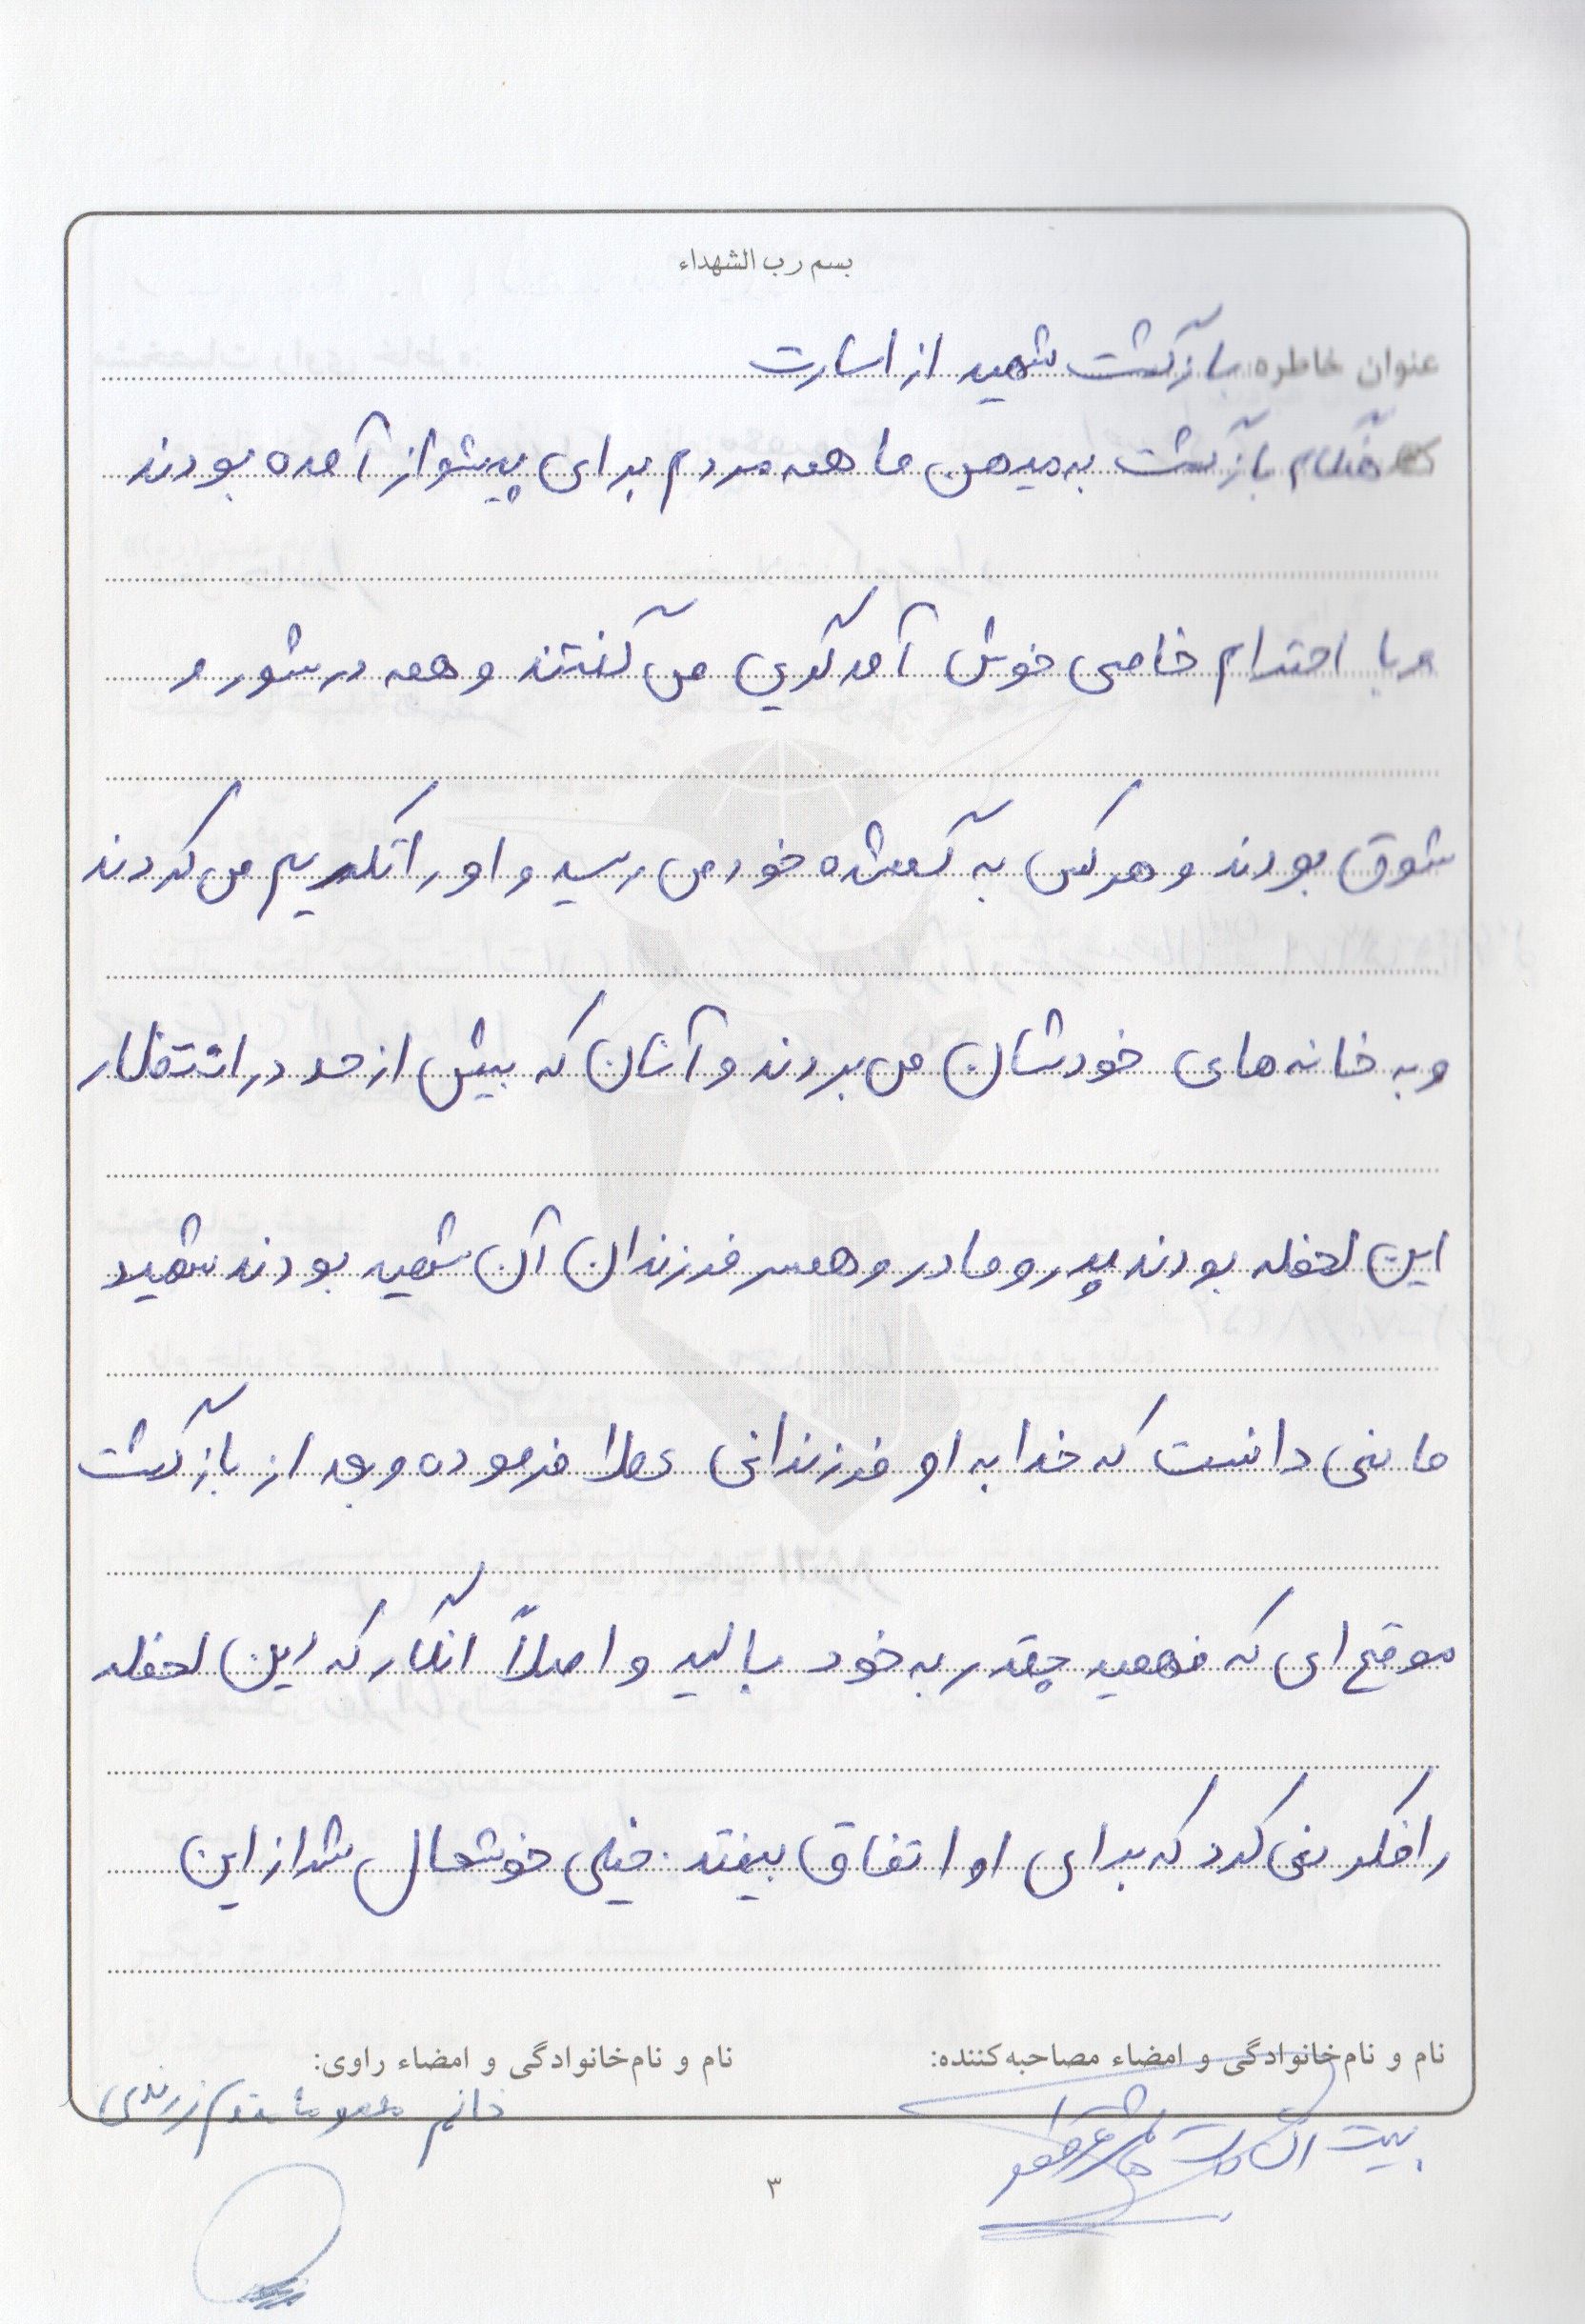 بسم رب الشهداء
عنوان خاطره: بازگشت شهید از اسارت
هنگام بازگشت به میهن ما همه مردم برای پیشواز آمده بودند
و با احترام خاصی خوش آمدگویی می گفتند و همه در شور و
شوق بودند و هر کس به گمشده خود می رسید و او را تکریم می کردند
و به خانه های خودشان می بردند و آنان که بیش از حد در انتظار
این لحظه بودند پدر و مادر و همسر فرزندان آن شهید بودند شهید
ما نمی دانست که خدا به او فرزندانی عطا فرموده و بعد از بازگشت
موقع ای که فهمید چقدر به خود بالید و اصلاً انگار که این لحظه
را فکر نمی کرد که برای او اتفاق بیفتد. خیلی خوشحال شد از این
نام و نام‌خانوادگی و امضاء مصاحبه‌کننده:
نام و نام‌خانوادگی و امضاء راوی:
بیت
خانم معصومه
۳